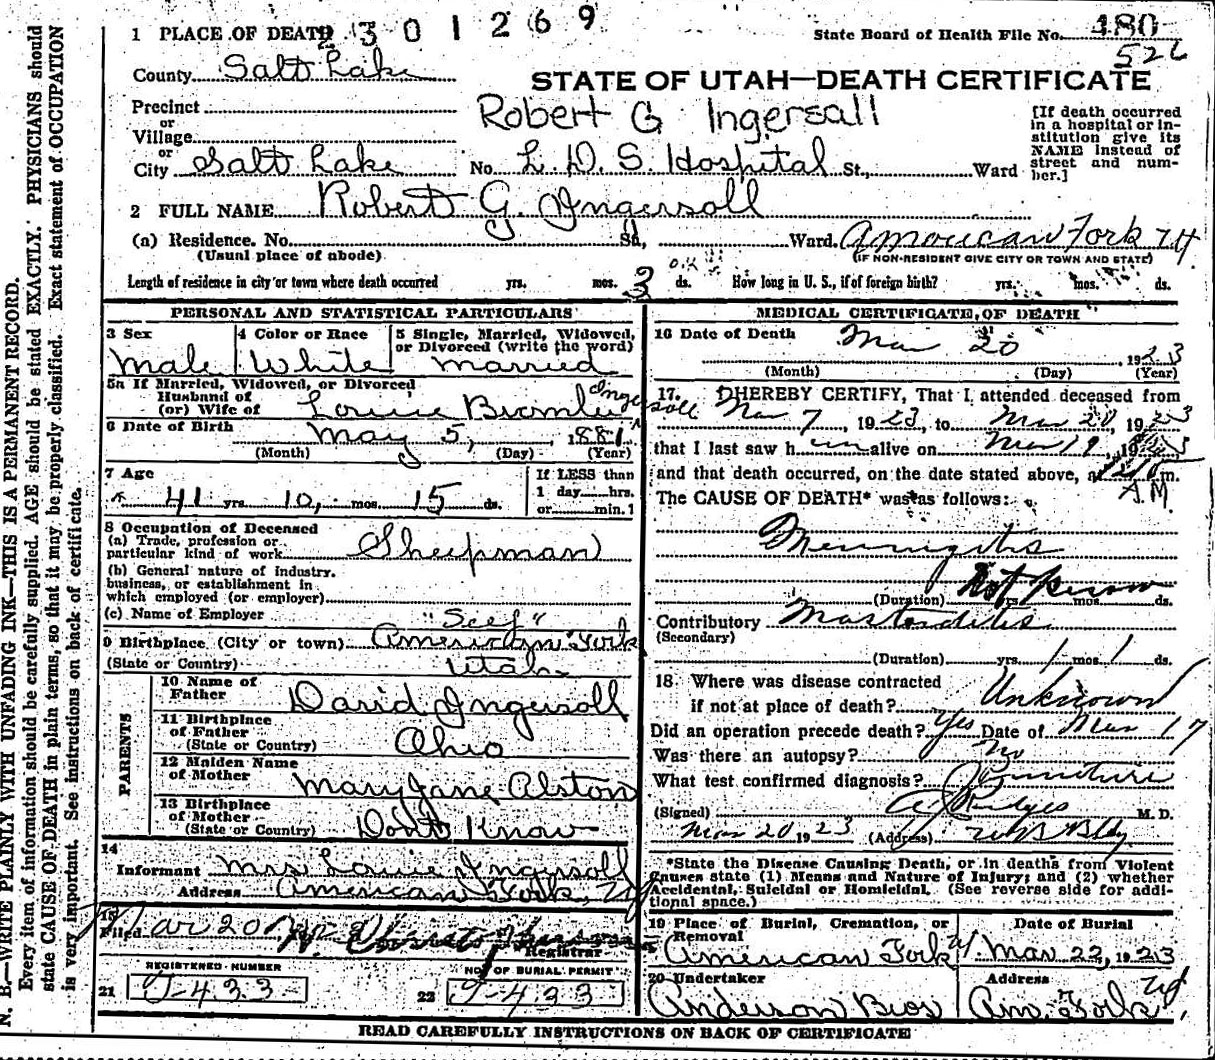 2 3 0 1 2 6 9
1 PLACE OF DEATH
State Board of Health File No. 480
526
County Salt Lake
STATE OF UTAH—DEATH CERTIFICATE
Precinct
or
Village
or
City Salt Lake No. L. D. S. Hospital St., Ward
Robert G Ingersall
[If death occurred in a hospital or in-
stitution give its
NAME instead of
street and num-
ber.]
2 FULL NAME Robert G. Ingersoll
(a) Residence. No. St., Ward. American Fork
(Usual place of abode)
(IF NON-RESIDENT GIVE CITY OR TOWN AND STATE)
Length of residence in city or town where death occurred yrs. mos. 3 ds. How long in U. S., if of foreign birth? yrs. mos. ds.
PERSONAL AND STATISTICAL PARTICULARS
3 Sex
Male
4 Color or Race
White
5 Single, Married, Widowed,
or Divorced (write the word)
Married
5a If Married, Widowed, or Divorced
Husband of
(or) Wife of Louise Bromley Ingersoll
6 Date of Birth
May 5, 1881
(Month) (Day) (Year)
7 Age
41 yrs. 10, mos. 15 ds.
If LESS than
1 day.....hrs.
or.....min.?
8 Occupation of Deceased
(a) Trade, profession or
particular kind of work Sheepman
(b) General nature of industry,
business, or establishment in
which employed (or employer)
(c) Name of Employer "Self"
9 Birthplace (City or town) American Fork
(State or Country) Utah
PARENTS
10 Name of
Father David Ingersoll
11 Birthplace
of Father
(State or Country) Ohio
12 Maiden Name
of Mother Mary Jane Alston
13 Birthplace
of Mother
(State or Country) Dont Know
14
Informant Mrs Louise Ingersoll
Address American Fork,
15
Filed Mar 20
Registrar
REGISTERED NUMBER
21 T-433
NO. OF BURIAL PERMIT
22 T-433
MEDICAL CERTIFICATE OF DEATH
16 Date of Death Mar 20 1923
(Month) (Day) (Year)
17. I HEREBY CERTIFY, That I attended deceased from
Mar 7, 1923, to Mar 20, 1923
that I last saw h im alive on Mar 19, 1923
and that death occurred, on the date stated above, at m.
A.M.
The CAUSE OF DEATH* was as follows:
Meningitis
(Duration) Not Known yrs. mos. ds.
Contributory Mastoiditis
(Secondary)
(Duration) yrs. 1 mos. 1 ds.
18. Where was disease contracted
if not at place of death? Unknown
Did an operation precede death? Yes Date of Mar 17
Was there an autopsy? No
What test confirmed diagnosis?
(Signed) M. D.
Mar 20 1923 (Address) Bldg
*State the Disease Causing Death, or in deaths from Violent
Causes state (1) Means and Nature of Injury; and (2) whether
Accidental, Suicidal or Homicidal. (See reverse side for addi-
tional space.)
19 Place of Burial, Cremation, or
Removal
American Fork
Date of Burial
Mar 22, 1923
20 Undertaker
Anderson Bros
Address
Am. Fork
READ CAREFULLY INSTRUCTIONS ON BACK OF CERTIFICATE
N. B.—WRITE PLAINLY WITH UNFADING INK—THIS IS A PERMANENT RECORD.
Every item of information should be carefully supplied. AGE should be stated EXACTLY. PHYSICIANS should
state CAUSE OF DEATH in plain terms, so that it may be properly classified. Exact statement of OCCUPATION
is very important. See instructions on back of certificate.